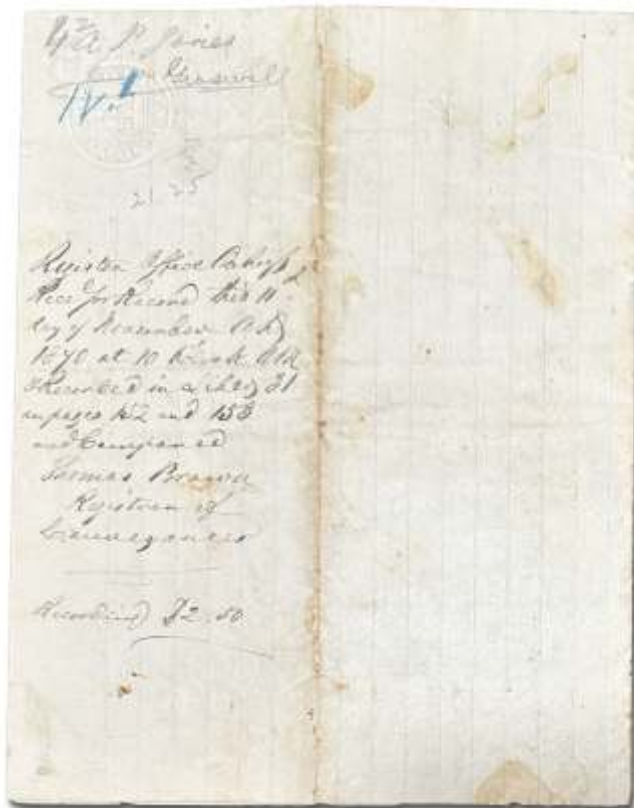 A. P. Jones
21.25
Register Office Oahu
Rec for Record this 11
day of November AD
1870 at 10 o'clock AM
& Recorded in Liber 31
on pages 152 and 153
and Compared
Thomas Brown
Registrar of
Conveyances
Recording $2.50